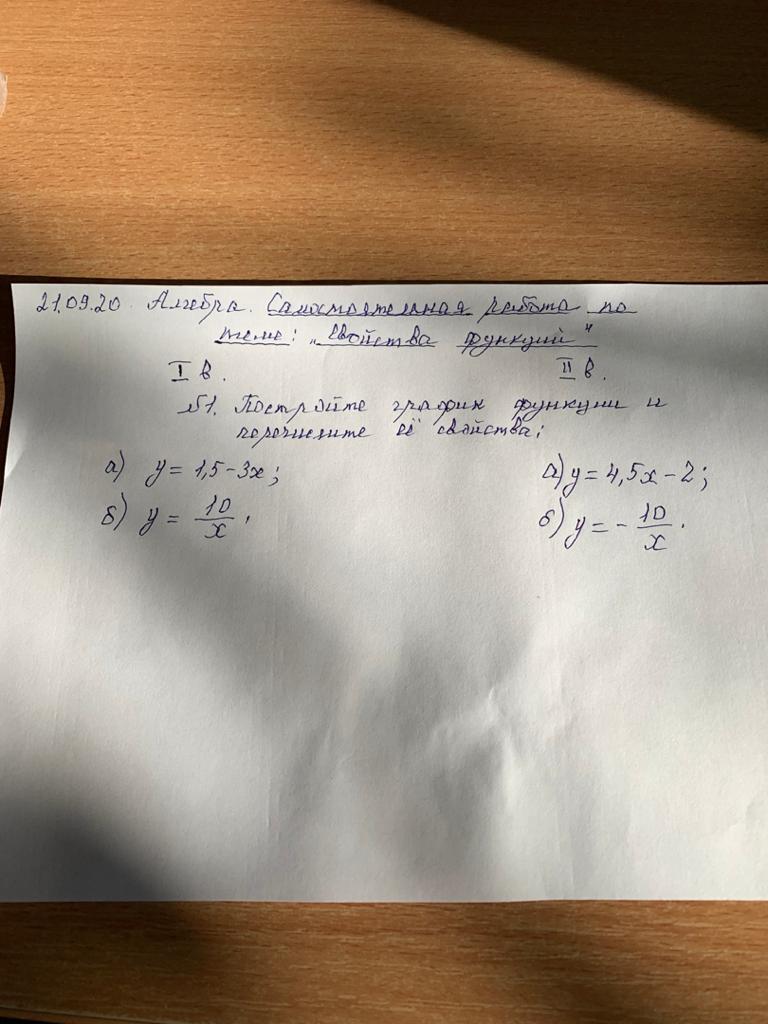 21.09.20. Алгебра. Самостоятельная работа по
теме: „Свойства функций"
I в. II в.
№1. Постройте график функции и
перечислите её свойства:
а) y = 1,5 - 3x; а) y = 4,5x - 2;
б) y = 10/x. б) y = - 10/x.